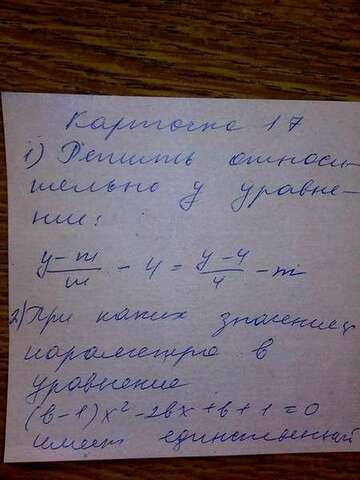 Карточка 17
1) Решить относи-
тельно y уравне-
ние:
(y-m)/m - 4 = (y-4)/4 - m
2) При каких значениях
параметра в
уравнение
(в-1)x²-2вx+в+1=0
имеет единственный